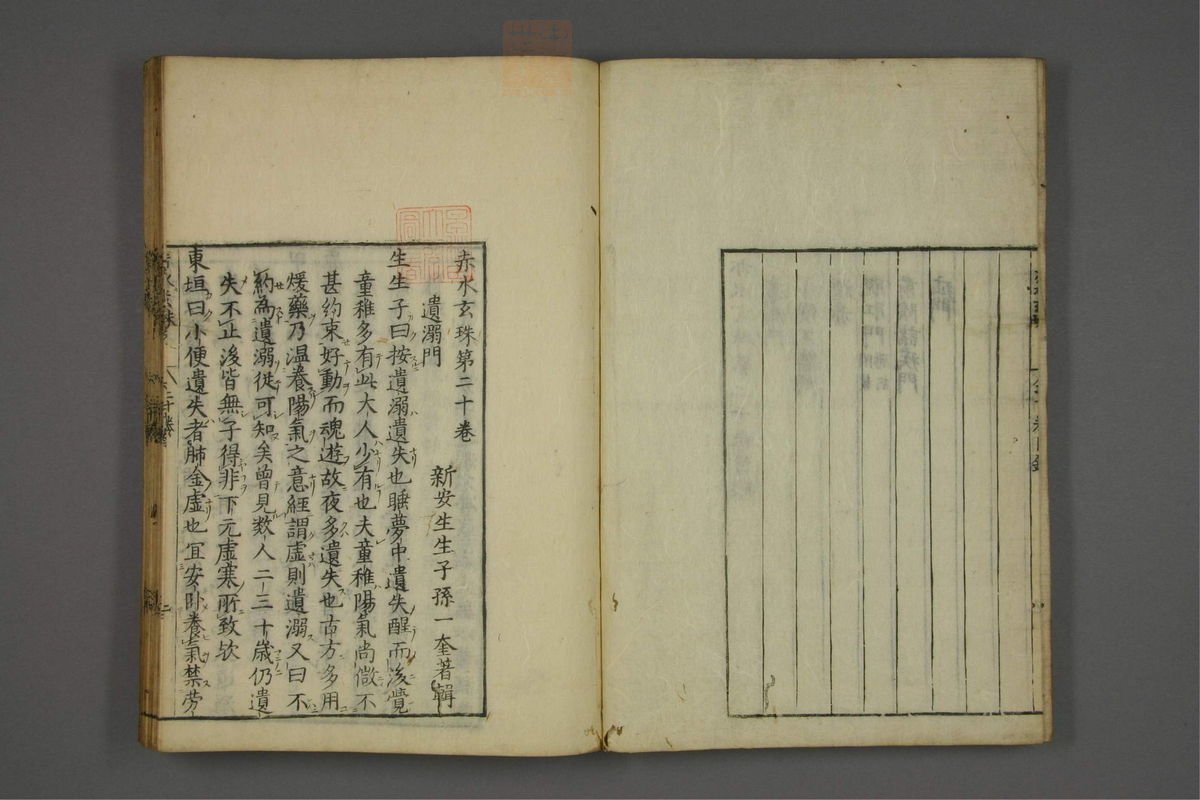 赤水玄珠第二十巻
新安生生子孫一奎著輯
遺溺門
生生子曰按遺溺遺失也睡夢中遺失醒而後覺
童稚多有此大人少有也夫童稚陽氣尚微不
甚約束好動而魂遊故夜多遺失也古方多用
煖藥乃温養陽氣之意經謂虚則遺溺又曰不
約為遺溺從可知矣曾見数人二三十歳仍遺
失不止後皆無子得非下元虚寒所致欤
東垣曰小便遺失者肺金虚也宜安卧養氣禁劳